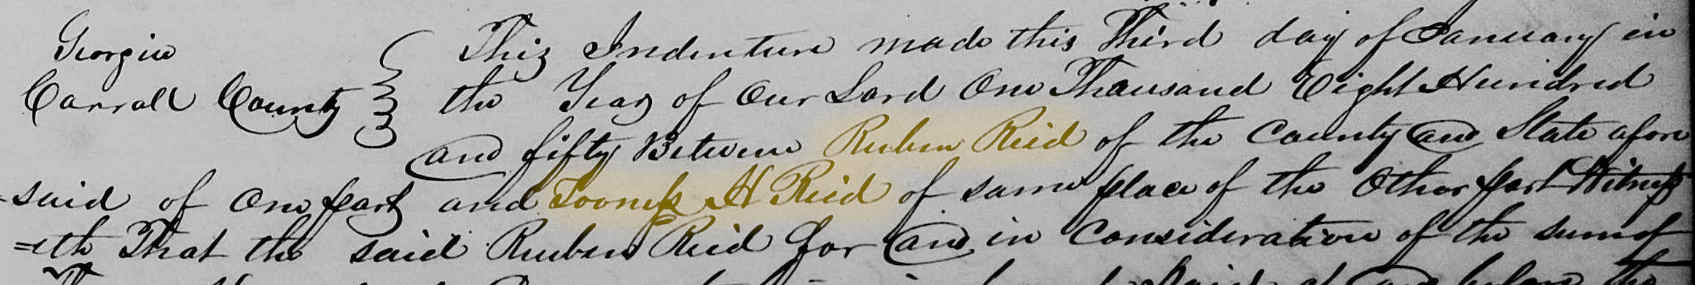 Georgia
Carroll County
This Indenture made this Third day of January in
the Year of Our Lord One Thousand Eight Hundred
and fifty Between Ruben Reid of the County and State afore
said of One part and H Reid of same place of the Other part Witness
=eth That the said Ruben Reid for and in Consideration of the sum of